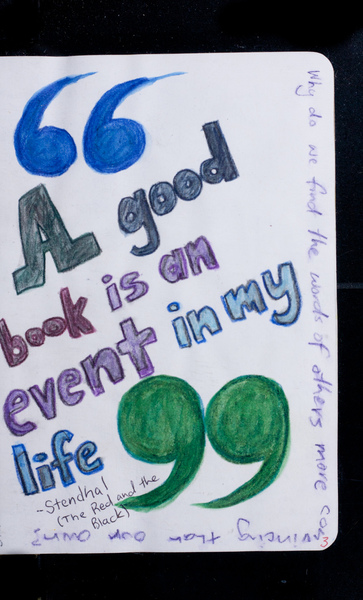 “
A good
book is an
event in my
life
”
-Stendhal
(The Red and the
Black)
Why do we find the words of others more con
vincing than our own?
3